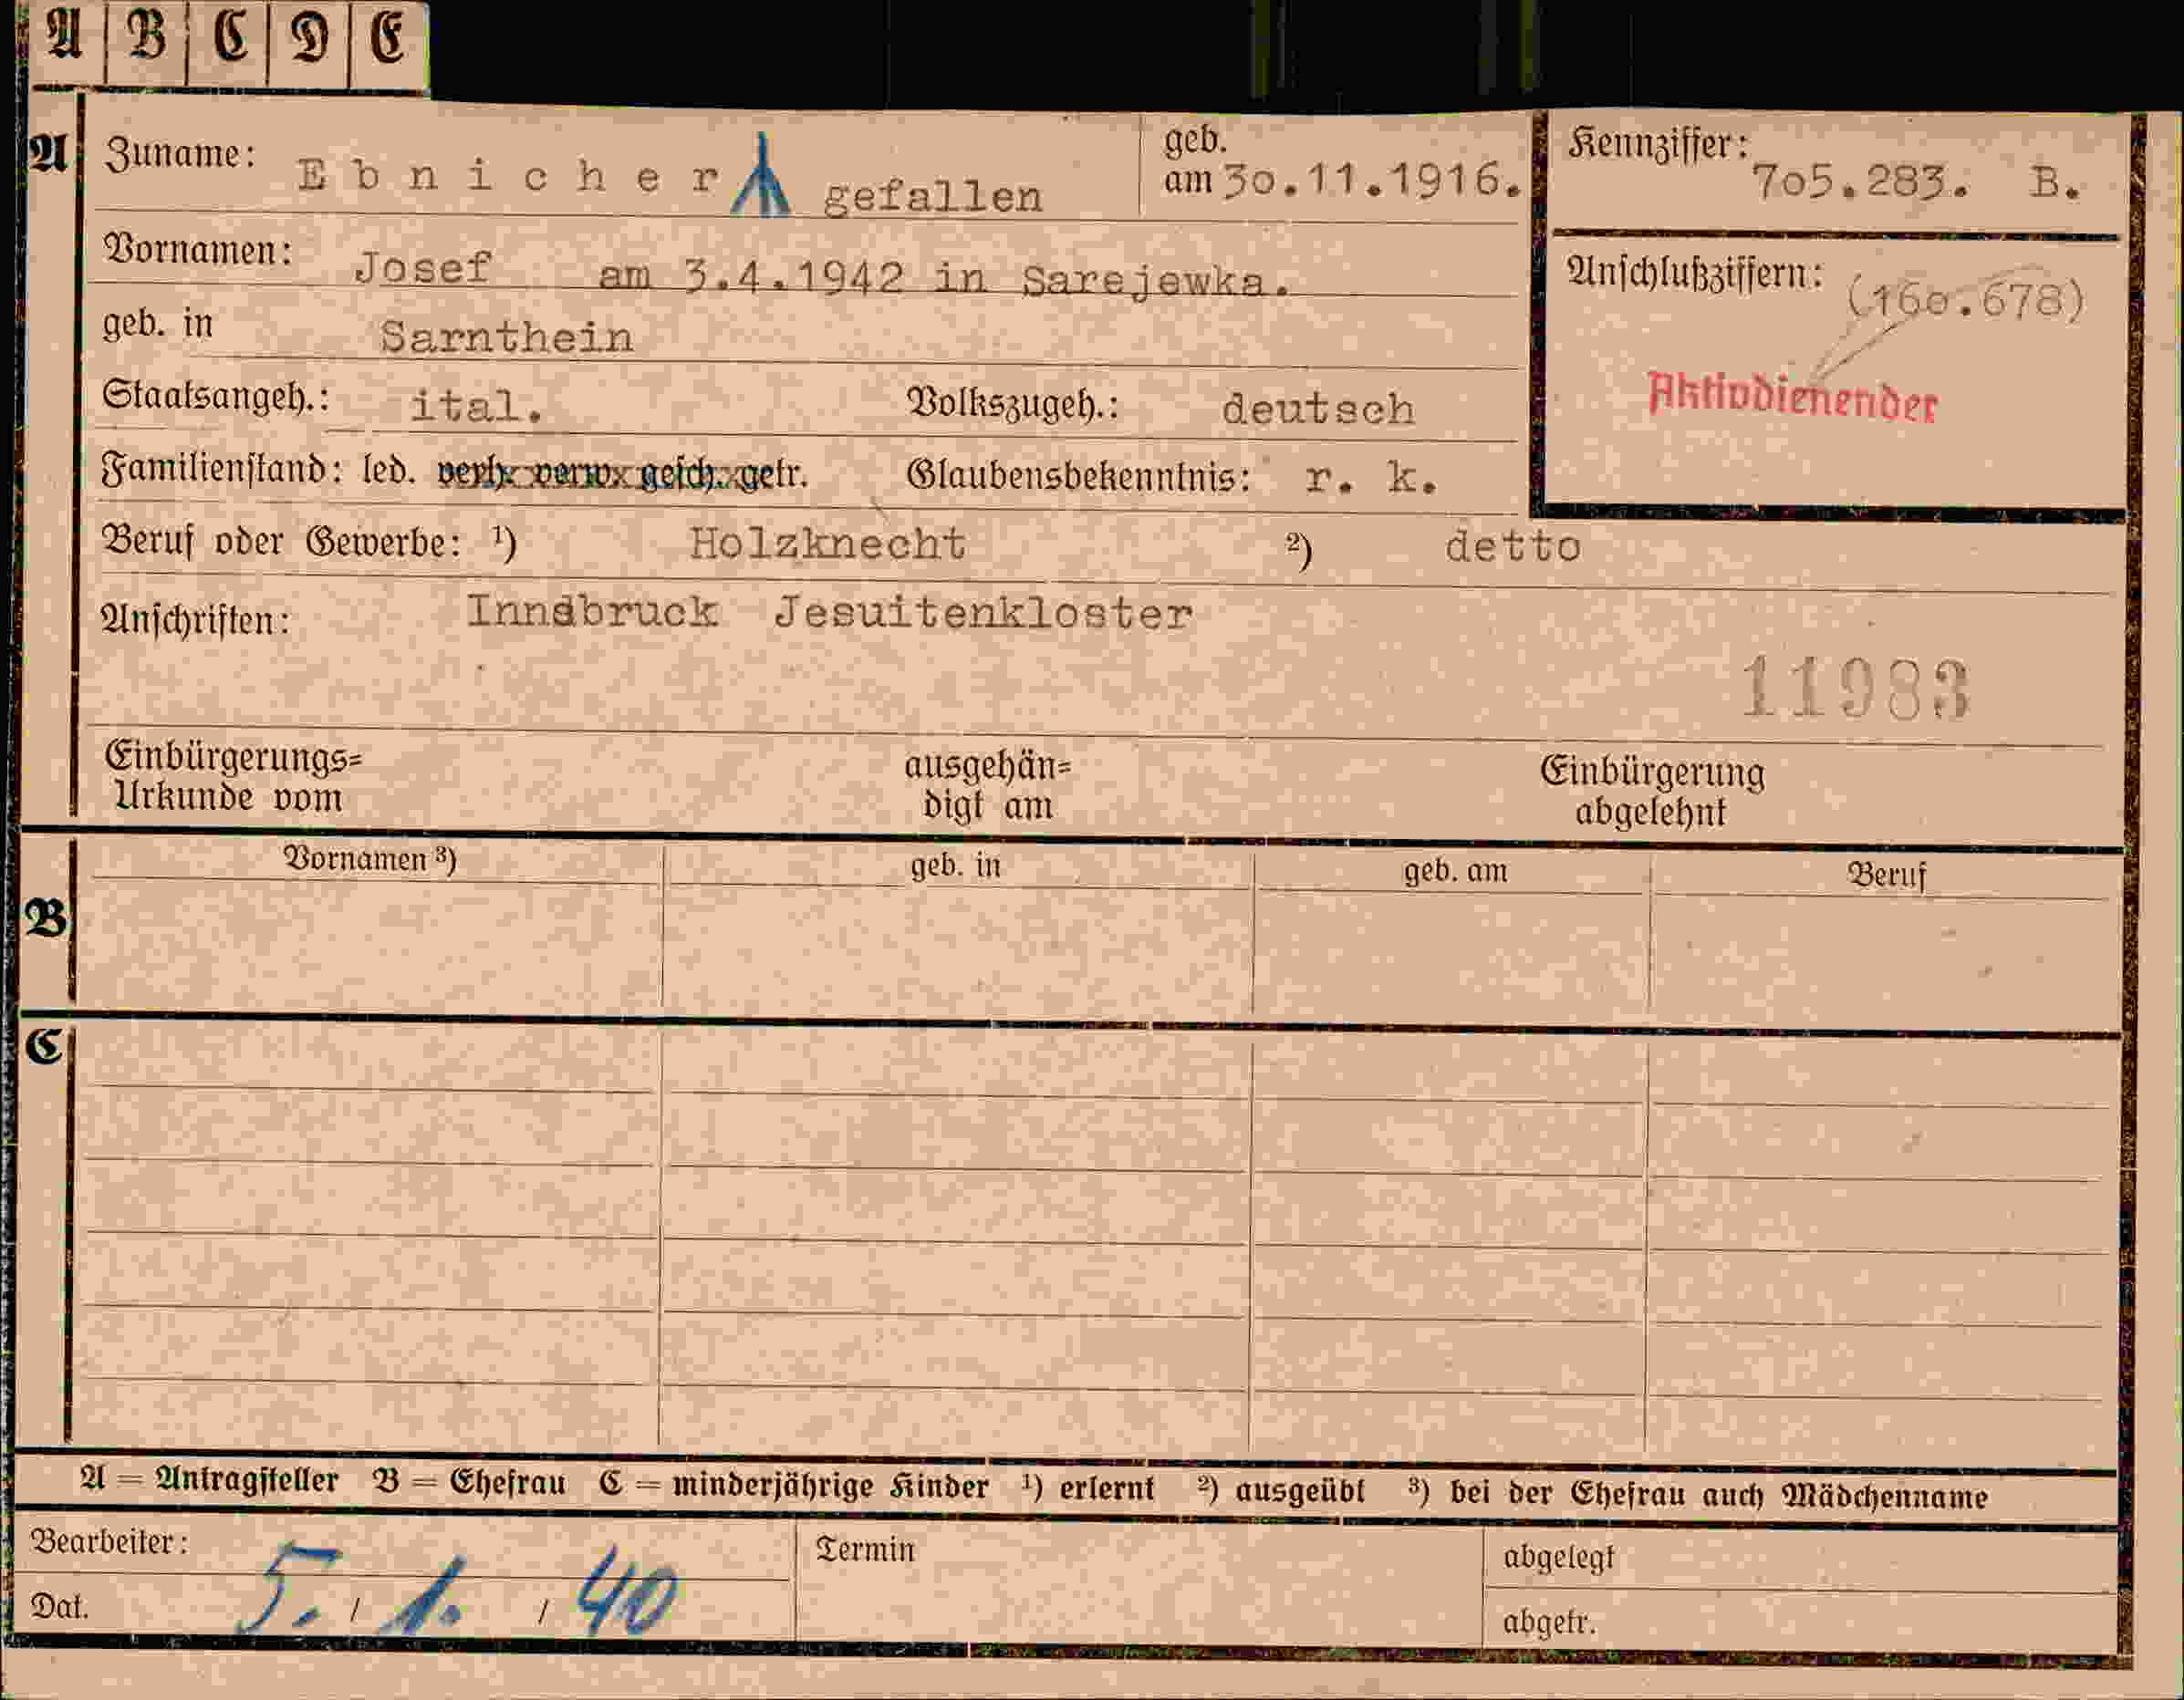 A B C D E
A Zuname: Ebnicher gefallen geb. am 3o.11.1916. Kennziffer: 7o5.283. B.
Vornamen: Josef am 3.4.1942 in Sarejewka. Anschlußziffern: (16o.678)
geb. in Sarnthein
Staatsangeh.: ital. Volkszugeh.: deutsch Aktivdienender
Familienstand: led. verh. verw. gesch. getr. Glaubensbekenntnis: r. k.
Beruf oder Gewerbe: ¹) Holzknecht ²) detto
Anschriften: Innsbruck Jesuitenkloster
11983
Einbürgerungs= ausgehän= Einbürgerung
Urkunde vom digt am abgelehnt
B Vornamen ³) geb. in geb. am Beruf
C
A = Antragsteller B = Ehefrau C = minderjährige Kinder ¹) erlernt ²) ausgeübt ³) bei der Ehefrau auch Mädchenname
Bearbeiter: Termin abgelegt
Dat. 5. / 1. / 40 abgetr.